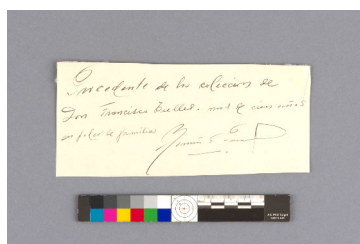 Procedente de la colección de
Don Francisco Trelles. mas de cien años
en poder de familia